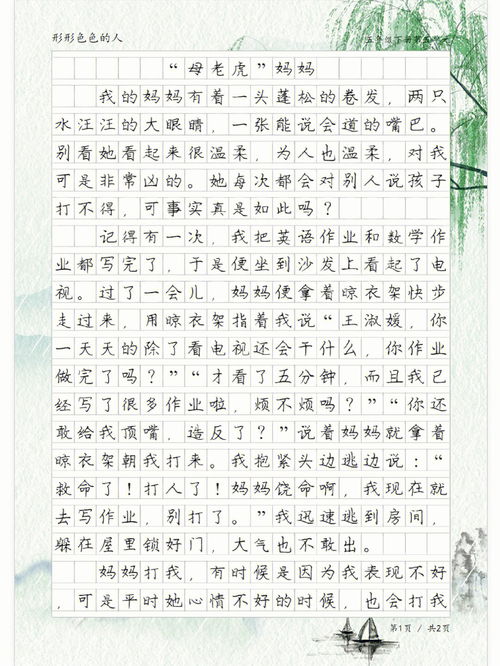 形形色色的人
五年级下册第五单元
“母老虎”妈妈
我的妈妈有着一头蓬松的卷发，两只
水汪汪的大眼睛，一张能说会道的嘴巴。
别看她看起来很温柔，为人也温柔，对我
可是非常凶的。她每次都会对别人说孩子
打不得，可事实真是如此吗？
记得有一次，我把英语作业和数学作
业都写完了，于是便坐到沙发上看起了电
视。过了一会儿，妈妈便拿着晾衣架快步
走过来，用晾衣架指着我说“王淑媛，你
一天天的除了看电视还会干什么，你作业
做完了吗？”“才看了五分钟，而且我已
经写了很多作业啦，烦不烦吗？”“你还
敢给我顶嘴，造反了？”说着妈妈就拿着
晾衣架朝我打来。我抱紧头边逃边说：“
救命了！打人了！妈妈饶命啊，我现在就
去写作业，别打了。”我迅速逃到房间，
躲在屋里锁好门，大气也不敢出。
妈妈打我，有时候是因为我表现不好
，可是平时她心情不好的时候，也会打我
第1页 / 共2页